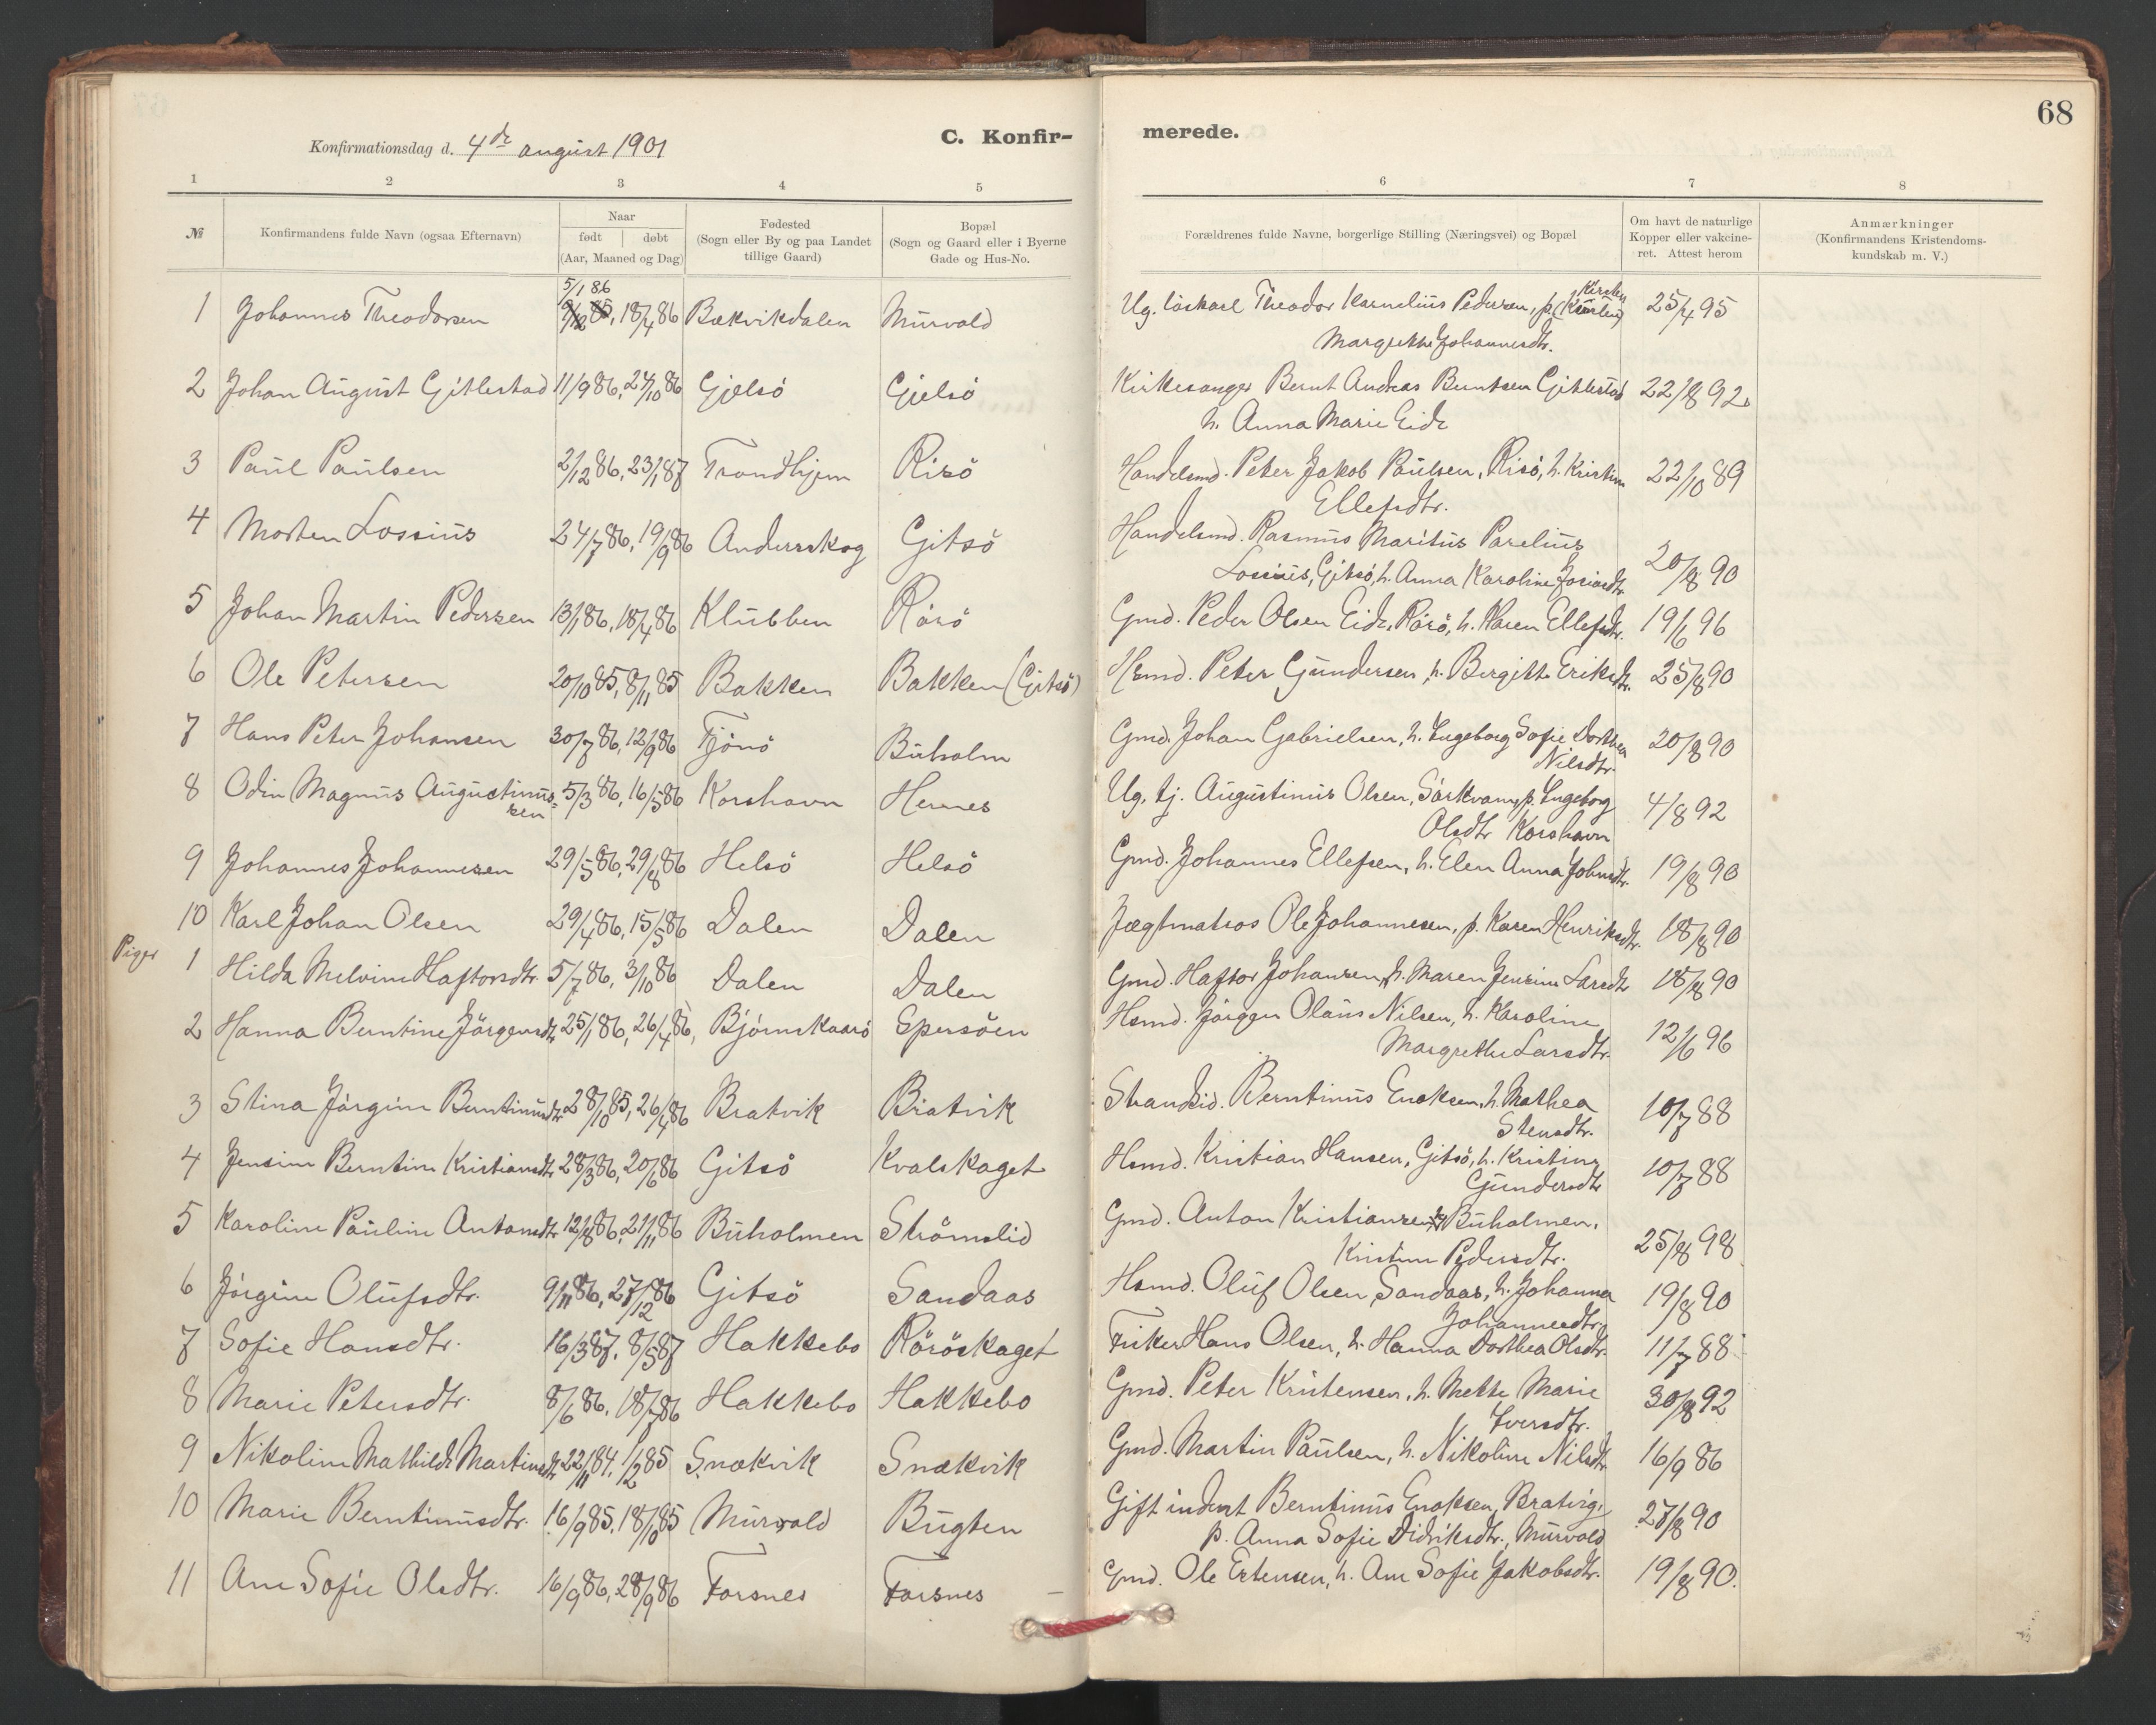 68
Konfirmationsdag d. 4de august 1901
C. Konfir-
merede.
1 2 3 4 5 6 7 8
№
Konfirmandens fulde Navn (ogsaa Efternavn)
Naar
født | døbt
(Aar, Maaned og Dag)
Fødested
(Sogn eller By og paa Landet
tillige Gaard)
Bopæl
(Sogn og Gaard eller i Byerne
Gade og Hus-No.
Forældrenes fulde Navne, borgerlige Stilling (Næringsvei) og Bopæl
Om havt de naturlige
Kopper eller vakcine-
ret. Attest herom
Anmærkninger
(Konfirmandens Kristendoms-
kundskab m. V.)
5/1 86
1 Johannes Theodorsen 9/12 85, 18/4 86 Bækvikdalen Murvold Ug. Theodor Kornelius Pedersen, p. Kirsten 25/4 95
Margrethe Johannesdtr.
2 Johan August Gitlestad 11/9 86, 24/10 86 Gjelsö Gjelsö Kirkesanger Bernt Andreas Berntsen Gitlestad 22/8 92
h. Anna Marie Eide
3 Paul Paulsen 2/12 86, 23/1 87 Trondhjem Risö Handelsmd. Peter Jakob Paulsen, Risö, h. Kristine 22/10 89
Ellefsdtr.
4 Morten Lossius 24/7 86, 19/9 86 Andersskog Gitsö Handelsmd. Rasmus Maritus Parelius 20/8 90
Lossius, Gitsö, h. Anna Karoline Josiasdtr.
5 Johan Martin Pedersen 13/1 86, 18/4 86 Klubben Rörö Gmd. Peder Olsen Eide, Rörö, h. Karen Ellefsdtr. 19/6 96
6 Ole Petersen 20/10 85, 8/11 85 Bakken Bakken (Gitsö) Hsmd. Peter Gundersen, h. Bergitte Eriksdtr. 25/8 90
7 Hans Peter Johansen 30/7 86, 12/9 86 Fjönö Buholm Gmd. Johan Gabrielsen, h. Ingeborg Sofie Dorthea 20/8 90
Nilsdtr.
8 Odin Magnus Augustinus- 5/3 86, 16/5 86 Korshavn Hernes Ug. tj. Augustinus Olsen, Sörkvam, p. Ingeborg 4/8 92
sen Olsdtr Korshavn
9 Johannes Johannesen 29/5 86, 29/8 86 Helsö Helsö Gmd. Johannes Ellefsen, h. Elen Anna Johnsdtr. 19/8 90
10 Karl Johan Olsen 29/4 86, 15/5 86 Dalen Dalen Jægtmatros Ole Johannesen, p. Karen Henriksdtr. 18/8 90
Piger
1 Hilda Melvine Haftorsdtr. 5/7 86, 3/10 86 Dalen Dalen Gmd. Haftor Johansen, h. Maren Jensine Larsdtr 18/8 90
2 Hanna Berntine Jörgensdtr 25/1 86, 26/4 86, Bjørnskaarö Espersöen Hsmd. Jörgen Olaus Nilsen, h. Karoline 12/6 96
Margrethe Larsdtr.
3 Stina Jörgine Berntinusdtr 28/10 85, 26/4 86 Bratvik Bratvik Strandsid. Berntinus Enoksen, h. Mathea 10/7 88
Stensdtr.
4 Jensine Berntine Kristiansdtr 28/3 86, 20/6 86 Gitsö Kvalskaget Hsmd. Kristian Hansen, Gitsö, h. Kristine 10/7 88
Gundersdtr
5 Karoline Pauline Antonsdtr 12/8 86, 21/11 86 Buholmen Strömslid Gmd. Anton Kristiansen, Buholmen, 25/8 98
Kristine Pedersdtr.
6 Jörgine Olufsdtr. 9/11 86, 27/12 86 Gitsö Sandaas Hsmd. Oluf Olsen Sandaas, h. Johanna 19/8 90
Johannesdtr.
7 Sofie Hansdtr. 16/3 87, 8/5 87 Hakkebo Röröskaget Fisker Hans Olsen, h. Hanna Dorthea Olsdtr. 11/7 88
8 Marie Petersdtr. 8/6 86, 18/7 86 Hakkebo Hakkebo Gmd. Peter Kristensen, h. Mette Marie 30/8 92
Iversdtr.
9 Nikoline Mathilde Martinsdtr 22/11 84, 1/2 85 Snækvik Snækvik Gmd. Martin Paulsen, h. Nikoline Nilsdtr 16/9 86
10 Marie Berntinusdtr. 16/9 85, 18/10 85 Murvold Bugten Gift inderst Berntinus Enoksen, Bratvig, 27/8 90
p. Anna Sofie Didriksdtr., Murvold
11 Ane Sofie Olsdtr. 16/9 86, 28/9 86 Forsnes Forsnes Gmd. Ole Estensen, h. Ane Sofie Jakobsdtr. 19/8 90.